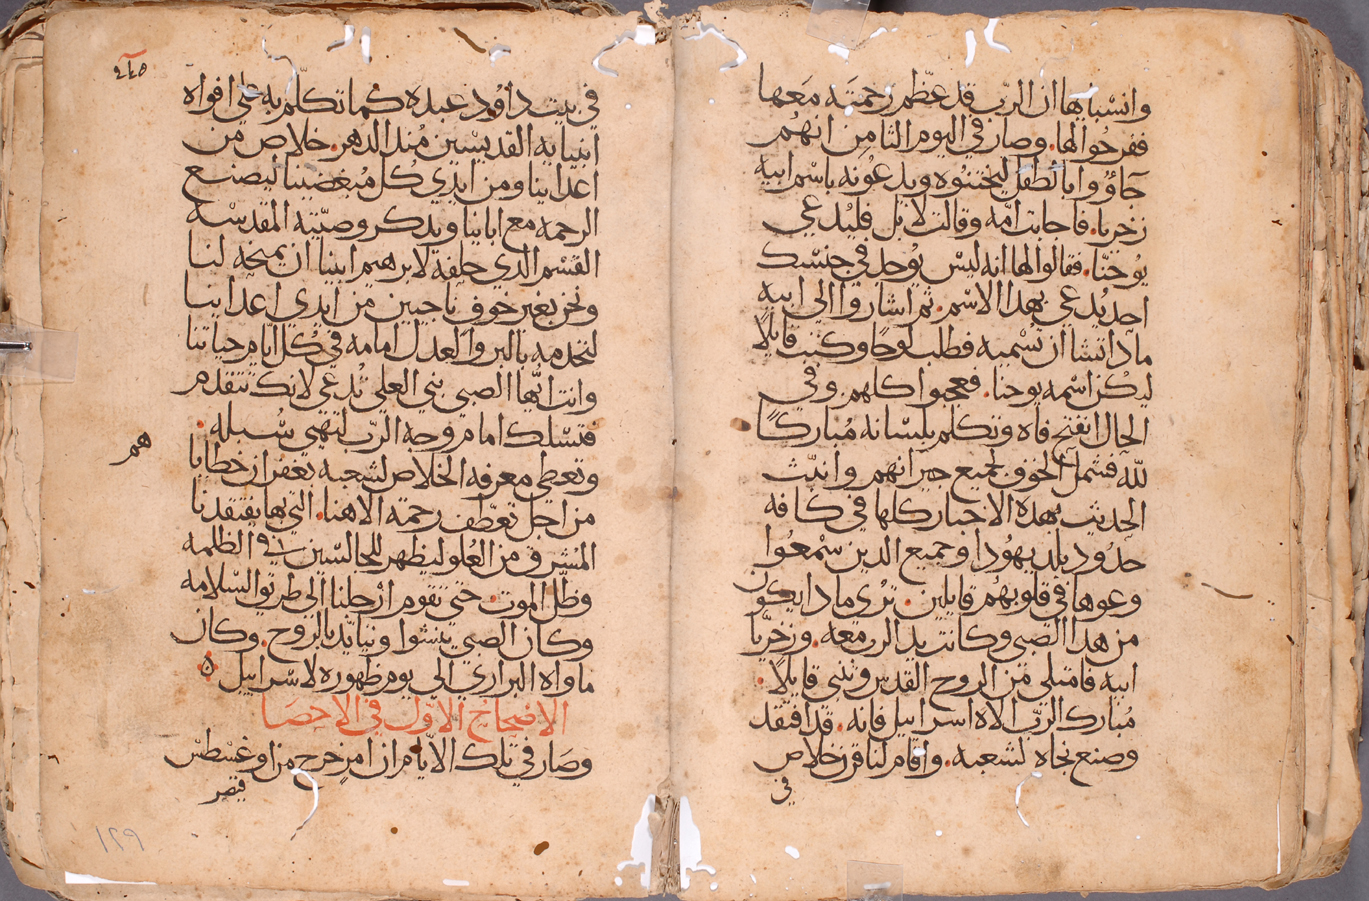 وانسباها ان الرب قد عظم رحمته معها
ففرحوا لها. وصار في اليوم الثامن انهم
جاؤوا بالطفل ليختنوه ويدعونه باسم ابيه
زخريا. فاجابت امه وقالت لا بل فليدعي
يوحنا. فقالوا لها انه ليس يوجد في جنسك
احد يدعي بهدا الاسم. تم اشاروا الي ابيه
مادا تشا ان تسميه فطلب لوحا وكتب قايلاً
ليكن اسمه يوحنا. فعجبوا كلهم وفي
الحال انفتح فاه وتكلم بلسانه مباركًا
لله فشمل الخوف لجميع جيرانهم وانبث
الحديث بهده الاخبار كلها في كافه
حدود بلد يهودا وجميع الدين سمعوا
وعوها في قلوبهم قايلين. تري مادا يكون
من هدا الصبي وكانت يد الرب معه. وزخريا
ابيه فامتلي من الروح القدس وتنبي قايلاً.
مبارك الرب الاه اسراييل فانه. قد افتقد
وصنع نجاه لشعبه. واقام لنا قرن خلاص
في
٢٤٥
في بيت داوود عبده كما تكلم به علي افواه
انبيايه القديسين مند الدهر. خلاص من
اعداينا ومن ايدي كل مبغضينا ليصنع
الرحمه مع اباينا ويدكر وصيته المقدسه
القسم الدي حلفه لابرهيم ابينا ان يمنحه لنا
ونحن بغير خوف ناجيين من ايدي اعداينا
لنخدمه بالبر والعدل امامه في كل ايام حياتنا
وانت ايها الصبي نبي العلي تدعي لانك تتقدم
فتسلك امام وجه الرب لتهيي سبله.
وتعطي معرفه الخلاص لشعبه بغفران خطايا
هم
من اجل تعطف رحمة الاهنا. التي بها يفتقدنا
المشرق من العلو ليظهر للجالسين في الظلمه
وظل الموت. حتي تقوم ارجلنا الي طريق السلامه
وكان الصبي ينشوا ويتايد بالروح. وكان
ماواه البراري الي يوم ظهوره لاسراييل ٥
الاصحاح الاول في الاحصا
وصار في تلك الايام ان امر خرج من اوغسطس
قيصر
١٢٩